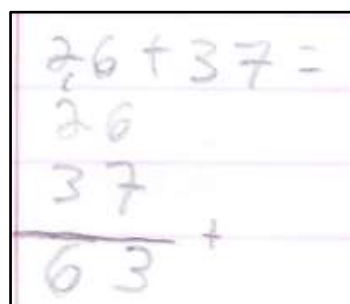 26 + 37 =
26
37
+
63